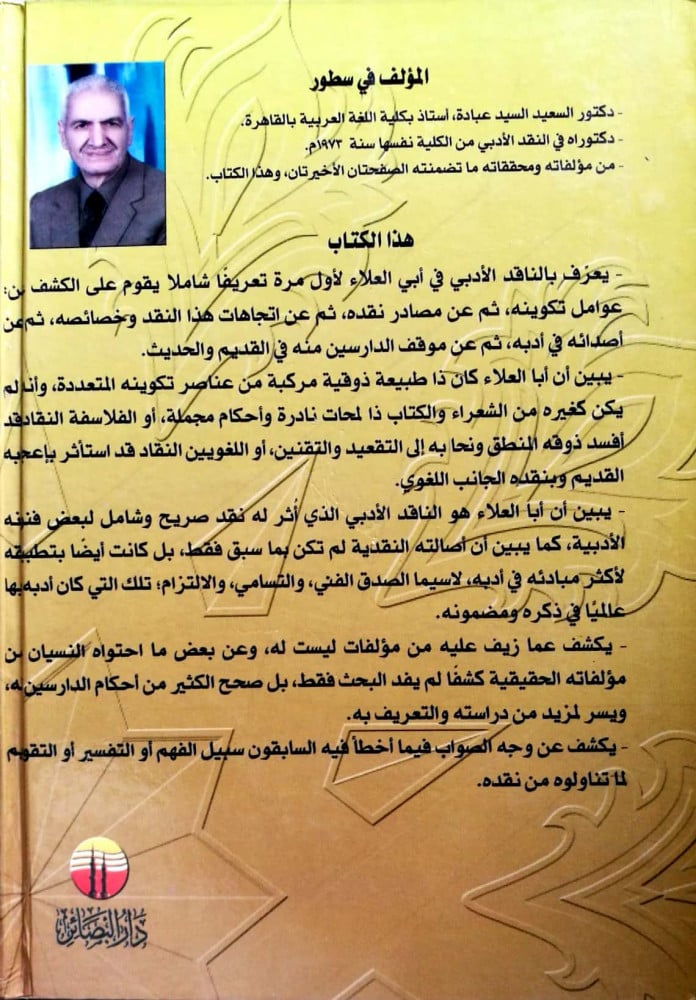 المؤلف في سطور
- دكتور السعيد السيد عبادة، أستاذ بكلية اللغة العربية بالقاهرة.
- دكتوراه في النقد الأدبي من الكلية نفسها سنة ١٩٧٣م.
- من مؤلفاته ومحققاته ما تضمنته الصفحتان الأخيرتان، وهذا الكتاب.
هذا الكتاب
- يعرّف بالناقد الأدبي في أبي العلاء لأول مرة تعريفًا شاملا يقوم على الكشف
عوامل تكوينه، ثم عن مصادر نقده، ثم عن اتجاهات هذا النقد وخصائصه، ثم عن
أصدائه في أدبه، ثم عن موقف الدارسين منه في القديم والحديث.
- يبين أن أبا العلاء كان ذا طبيعة ذوقية مركبة من عناصر تكوينه المتعددة، وأنه لم
يكن كغيره من الشعراء والكتاب ذا لمحات نادرة وأحكام مجملة، أو الفلاسفة النقاد قد
أفسد ذوقه المنطق ونحا به إلى التقعيد والتقنين، أو اللغويين النقاد قد استأثر بإعجابه
القديم وبنقده الجانب اللغوي.
- يبين أن أبا العلاء هو الناقد الأدبي الذي أُثر له نقد صريح وشامل لبعض فنونه
الأدبية، كما يبين أن أصالته النقدية لم تكن بما سبق فقط، بل كانت أيضًا بتطبيقه
لأكثر مبادئه في أدبه، لاسيما الصدق الفني، والتسامي، والالتزام؛ تلك التي كان أدبه بها
عالميًا في ذكره ومضمونه.
- يكشف عما زيف عليه من مؤلفات ليست له، وعن بعض ما احتواه النسيان من
مؤلفاته الحقيقية كشفًا لم يفد البحث فقط، بل صحح الكثير من أحكام الدارسين له،
ويسر لمزيد من دراسته والتعريف به.
- يكشف عن وجه الصواب فيما أخطأ فيه السابقون سبيل الفهم أو التفسير أو التقويم
لما تناولوه من نقده.
دار البصائر